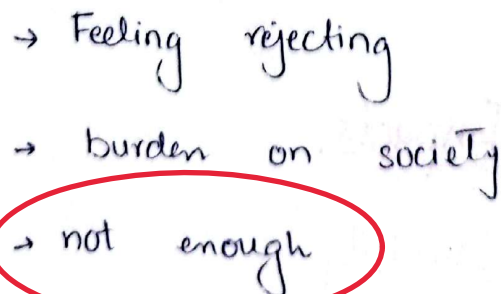 → Feeling rejecting
→ burden on society
→ not enough